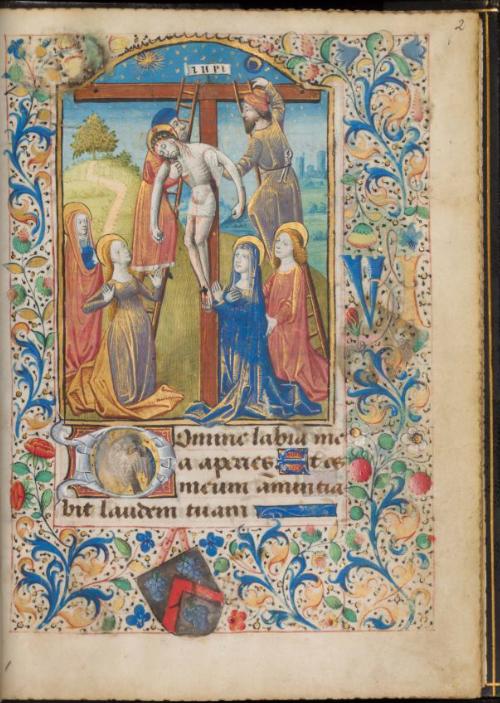 2
INRI
V I
Domine labia me
a aperies Et os
meum ānuntia
bit laudem tuam